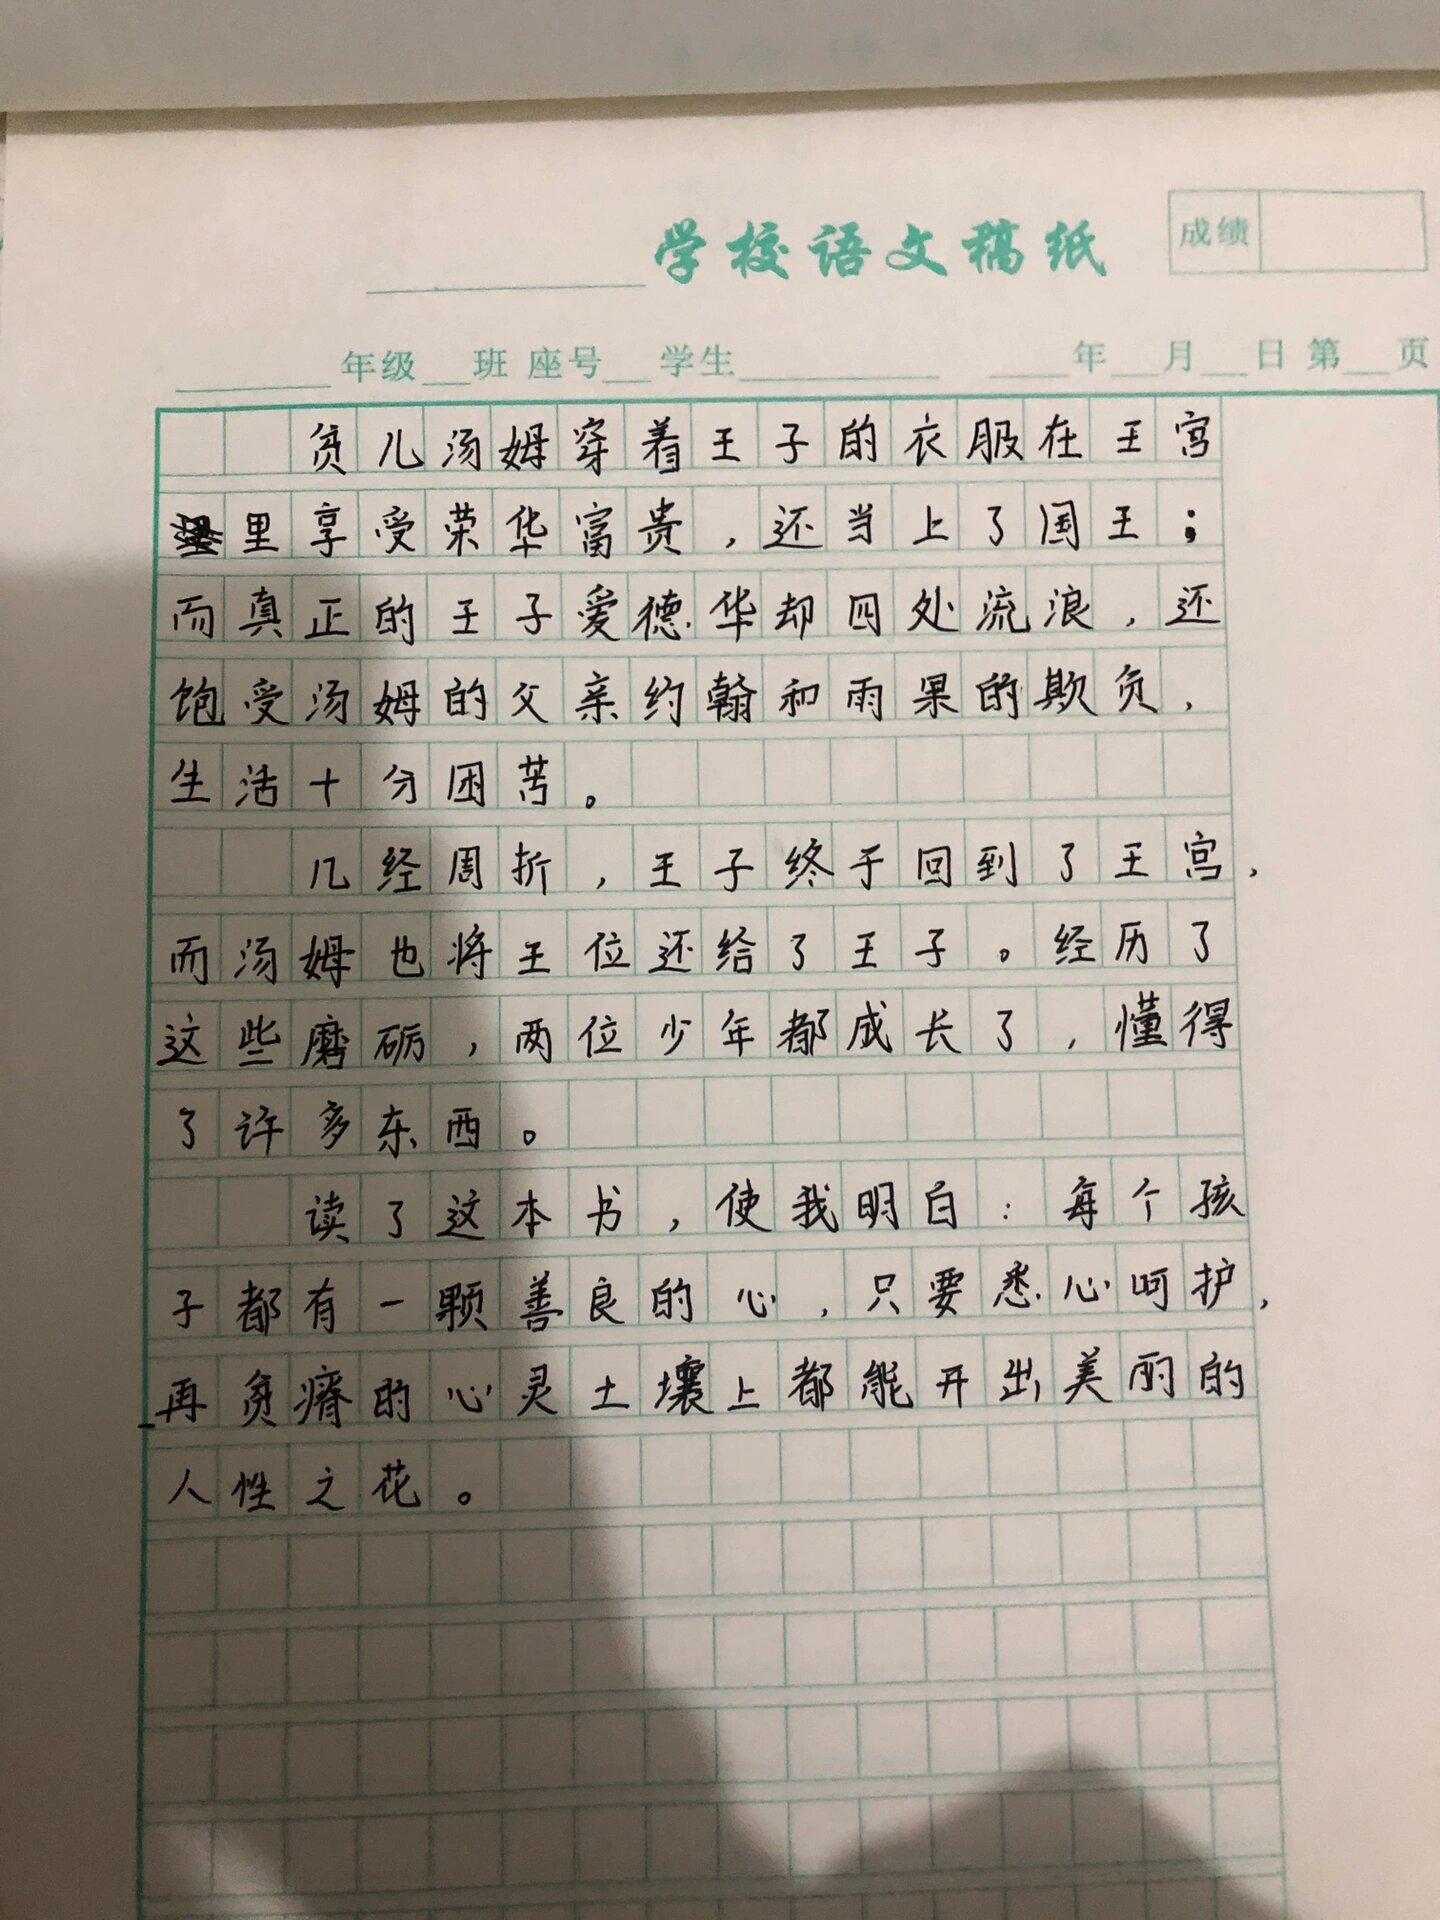 学校语文稿纸 成绩
年级 班 座号 学生 年 月 日 第 页
贫儿汤姆穿着王子的衣服在王宫
里享受荣华富贵，还当上了国王；
而真正的王子爱德华却四处流浪，还
饱受汤姆的父亲约翰和雨果的欺负，
生活十分困苦。
几经周折，王子终于回到了王宫，
而汤姆也将王位还给了王子。经历了
这些磨砺，两位少年都成长了，懂得
了许多东西。
读了这本书，使我明白：每个孩
子都有一颗善良的心，只要悉心呵护，
再贫瘠的心灵土壤上都能开出美丽的
人性之花。